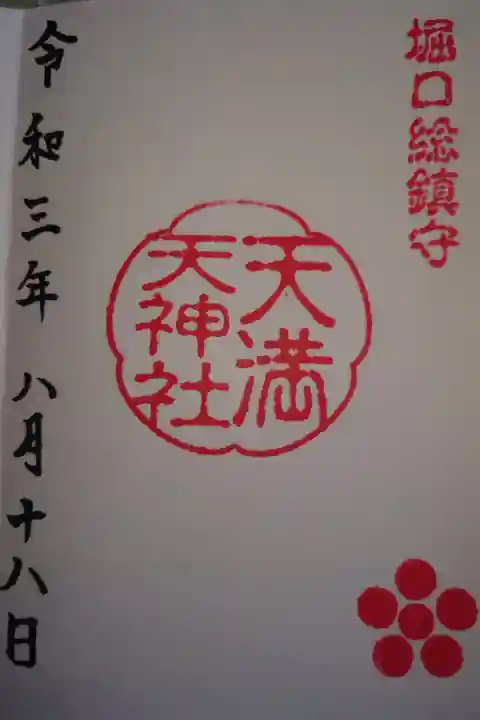 堀口総鎮守
天満
天神社
令和三年 八月十八日